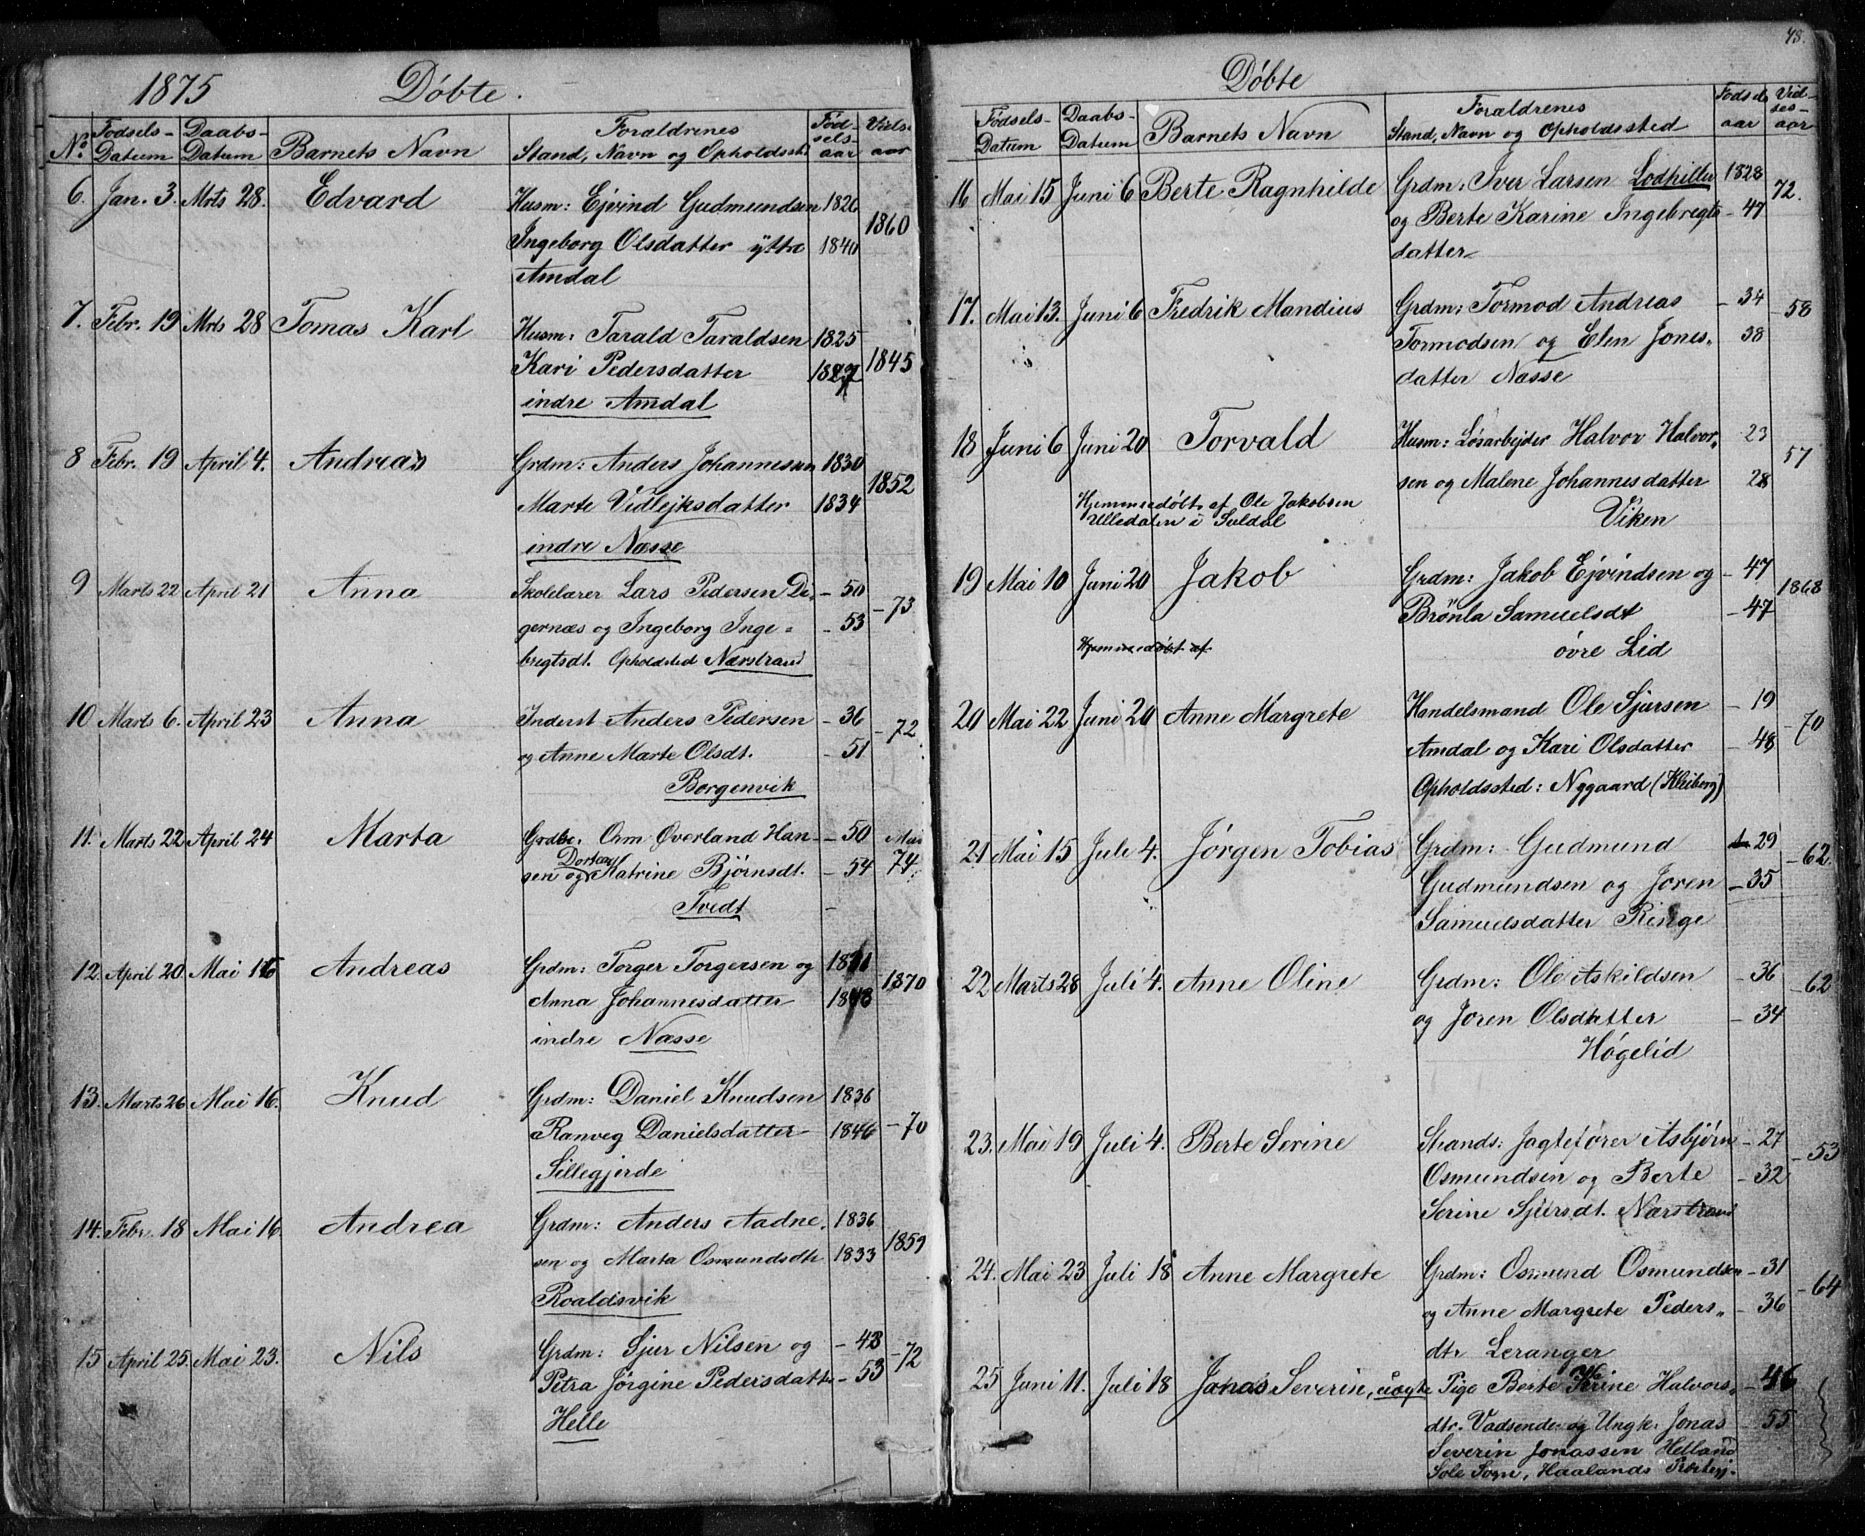 1875 Döbte.
No Fødsels-Datum Daabs-Datum Barnets Navn Forældrenes Stand, Navn og Opholdsst. Fød-sels-aar Viels-aar
6. Jan. 3. Mrts 28. Edvard Husm: Ejvind Gudmundsen 1826 1860
Ingeborg Olsdatter yttre 1840
Amdal
7. Febr. 19 Mrts 28 Tomas Karl Husm: Tarald Taraldsen 1825 1845
Kari Pedersdatter
indre Amdal
8 Febr. 19 April 4. Andreas Grdm: Anders Johannessen 1830 1852
Marte Vidlejksdatter 1834
indre Næsse
9 Marts 22 April 21 Anna Skolelærer Lars Pedersen Di- - 50 - 73
gernæs og Ingeborg Inge= - 53
bregtsdt. Opholdsted Nærstrand
10 Marts 6. April 23 Anna Inderst Anders Pedersen - 36 - 72
og Anne Marte Olsdt. - 51
Borgenvik
11. Marts 22 April 24 Marta Orm Øverland Han- - 50 74
sen og Dortea Katrine Bjørnsdt. - 54
Tvedt
12. April 20. Mai 16 Andreas Grdm: Torger Torgersen og 1870
Anna Johannesdatter
indre Næsse
13. Marts 26 Mai 16. Knud Grdm: Daniel Knudsen 1836 - 70
Ranveg Danielsdatter 1846
Sillegjerde
14. Febr. 18 Mai 16. Andrea Grdm: Anders Aadne- 1836 1859
sen og Marta Osmundsdtr 1833
Roaldsvik
15 April 25. Mai 23. Nils Grdm: Sjur Nilsen og - 48 - 72
Petra Jørgine Pedersdatter - 53
Helle
48.
Döbte
Fødsels-Datum Daabs-Datum Barnets Navn Forældrenes Stand, Navn og Opholdssted Fødsels aar Viel-ses-aar
16 Mai 15 Juni 6 Berte Ragnhilde Grdm: Iver Larsen Lodhiller 1828 72.
og Berte Karine Ingebregts - 47
datter
17. Mai 13. Juni 6 Fredrik Mandius Grdm: Tormod Andreas - 34 - 58
Tormodsen og Elen Jones- 38
datter Næsse
18 Juni 6 Juni 20 Torvald Husm: Løsarbejder Halvor Halvor- 23 57
sen og Malene Johannesdatter 28
Hjemmedøbt af Ole Jakobsen
Ulledalen i Suldal
Viken
19 Mai 10 Juni 20 Jakob Grdm: Jakob Ejvindsen og - 47 1868
Brønla Samuelsdt - 47
Hjemmedøbt af øvre Lid
20 Mai 22 Juni 20 Anne Margrete Handelsmand Ole Sjursen - 19 - 70
Amdal og Kari Olsdatter - 48
Opholdssted: Nygaard (Kleiberg)
21 Mai 15 Juli 4. Jørgen Tobias Grdm: Gudmund 29 - 62.
Gudmundsen og Joren - 35
Samuelsdatter Ringe
22 Marts 28 Juli 4. Anne Oline Grdm: Ole Askildsen - 36 - 62
og Joren Olsdatter - 34
Høgelid
23. Mai 19 Juli 4. Berte Serine Strands: Jagtefører Asbjørn - 27 - 53
Osmundsen og Berte - 32
Serine Sjursdt. Nærstrand
24. Mai 23 Juli 18 Anne Margrete Grdm: Osmund Osmundsen - 31 - 64
og Anne Margrete Peders- - 36
dtr Leranger
25 Juni 11. Juli 18 Jonas Severin, uægte Pige Berte Halvors- - 46
dtr. Vadsende og Ungk. Jonas - 55
Severin Jonassen Helland
Sole Sogn, Haalands Præstegj.